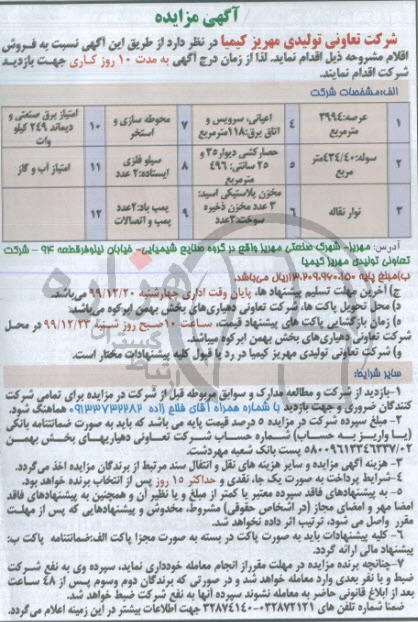 آگهی مزایده
شرکت تعاونی تولیدی مهریز کیمیا در نظر دارد از طریق این آگهی نسبت به فروش
اقلام مشروحه ذیل اقدام نماید. لذا از زمان درج آگهی به مدت ۱۰ روز کاری جهت بازدید
شرکت اقدام نمایند.
الف: مشخصات شرکت
۱ عرصه: ۳۹۹۴ مترمربع ۴ اعیانی، سرویس و اتاق برق: ۱۱۸مترمربع ۷ محوطه سازی و استخر ۱۰ امتیاز برق صنعتی و دیماند ۲۴۹ کیلو وات
۲ سوله: ۴۳۴/۴۰متر مربع ۵ حصارکشی دیوار۳۵ و ۲۵ سانتی: ۴۹۶ مترمربع ۸ سیلو فلزی ایستاده: ۲ عدد ۱۱ امتیاز آب و گاز
۳ نوار نقاله ۶ مخزن پلاستیکی اسید: ۳ عدد مخزن ذخیره سوخت: ۲عدد ۹ پمپ باد: ۲عدد پمپ و اتصالات ۱۲
آدرس: مهریز- شهرک صنعتی مهریز واقع در گروه صنایع شیمیایی- خیابان نیلوفر قطعه ۹۴ - شرکت
تعاونی تولیدی مهریز کیمیا
ب) مبلغ پایه ۱۳،۲۰۹،۹۶۰،۱۵۰ریال می‌باشد.
ج) آخرین مهلت تسلیم پیشنهاد ها، پایان وقت اداری چهارشنبه ۹۹/۱۲/۲۰ می‌باشد.
د) محل تحویل پاکت ها، شرکت تعاونی دهیاری‌های بخش بهمن ابرکوه می‌باشد.
ه) زمان بازگشایی پاکت های پیشنهاد قیمت، ساعت ۱۰صبح روز شنبه ۹۹/۱۲/۲۳ در محل
شرکت تعاونی دهیاری‌های بخش بهمن ابرکوه میباشد.
و) شرکت تعاونی تولیدی مهریز کیمیا در رد یا قبول کلیه پیشنهادات مختار است.
سایر شرایط:
۱-بازدید از شرکت و مطالعه مدارک و سوابق مربوطه قبل از شرکت در مزایده برای تمامی شرکت
کنندگان ضروری و جهت بازدید با شماره همراه آقای فلاح زاده ۰۹۱۳۳۷۳۲۲۸۲ هماهنگ شود.
۲- مبلغ سپرده شرکت در مزایده ۵ درصد قیمت پایه می باشد که باید به صورت ضمانتنامه بانکی
(یا واریز به حساب) شماره حساب شرکت تعاونی دهیاریهای بخش بهمن
۵۸۰۰۹۶۱۳۳۴۶۳۳۷/۰۲ پست بانک شعبه مهردشت.
۳- هزینه آگهی مزایده و سایر هزینه های نقل و انتقال سند مرتبط از برندگان مزایده اخذ می‌گردد.
۴-شرایط پرداخت به صورت یک جا، نقدی و حداکثر ۱۵ روز پس از انتخاب برنده خواهد بود.
۵- به پیشنهادهای فاقد سپرده معتبر یا کمتر از مبلغ و یا نظیر آن و همچنین به پیشنهادهای فاقد
امضا مهر و امضای مجاز (در اشخاص حقوقی) مشروط، مخدوش و پیشنهادهایی که پس از مهلت
مقرر واصل می شود، ترتیب اثر داده نخواهد شد.
۶- کلیه پیشنهادات باید به صورت پاکت در بسته به صورت مجزا پاکت الف:ضمانتنامه پاکت ب:
پیشنهاد مالی ارائه گردد.
۷-چنانچه برنده مزایده در مهلت مقرر از انجام معامله خودداری نماید، سپرده وی به نفع شرکت
ضبط و با نفر بعدی وارد معامله خواهد شد و در صورتی که برندگان دوم وسوم پس از ۴۸ ساعت
بعد از ابلاغ قانونی حاضر به معامله نشوند سپرده آنها به نفع شرکت ضبط خواهد شد.
ضمنا شماره تلفن های ۰۳۲۸۷۲۱۲۱-۳۲۸۷۴۱۴۰ جهت اطلاعات بیشتر در این زمینه اعلام می‌گردد.